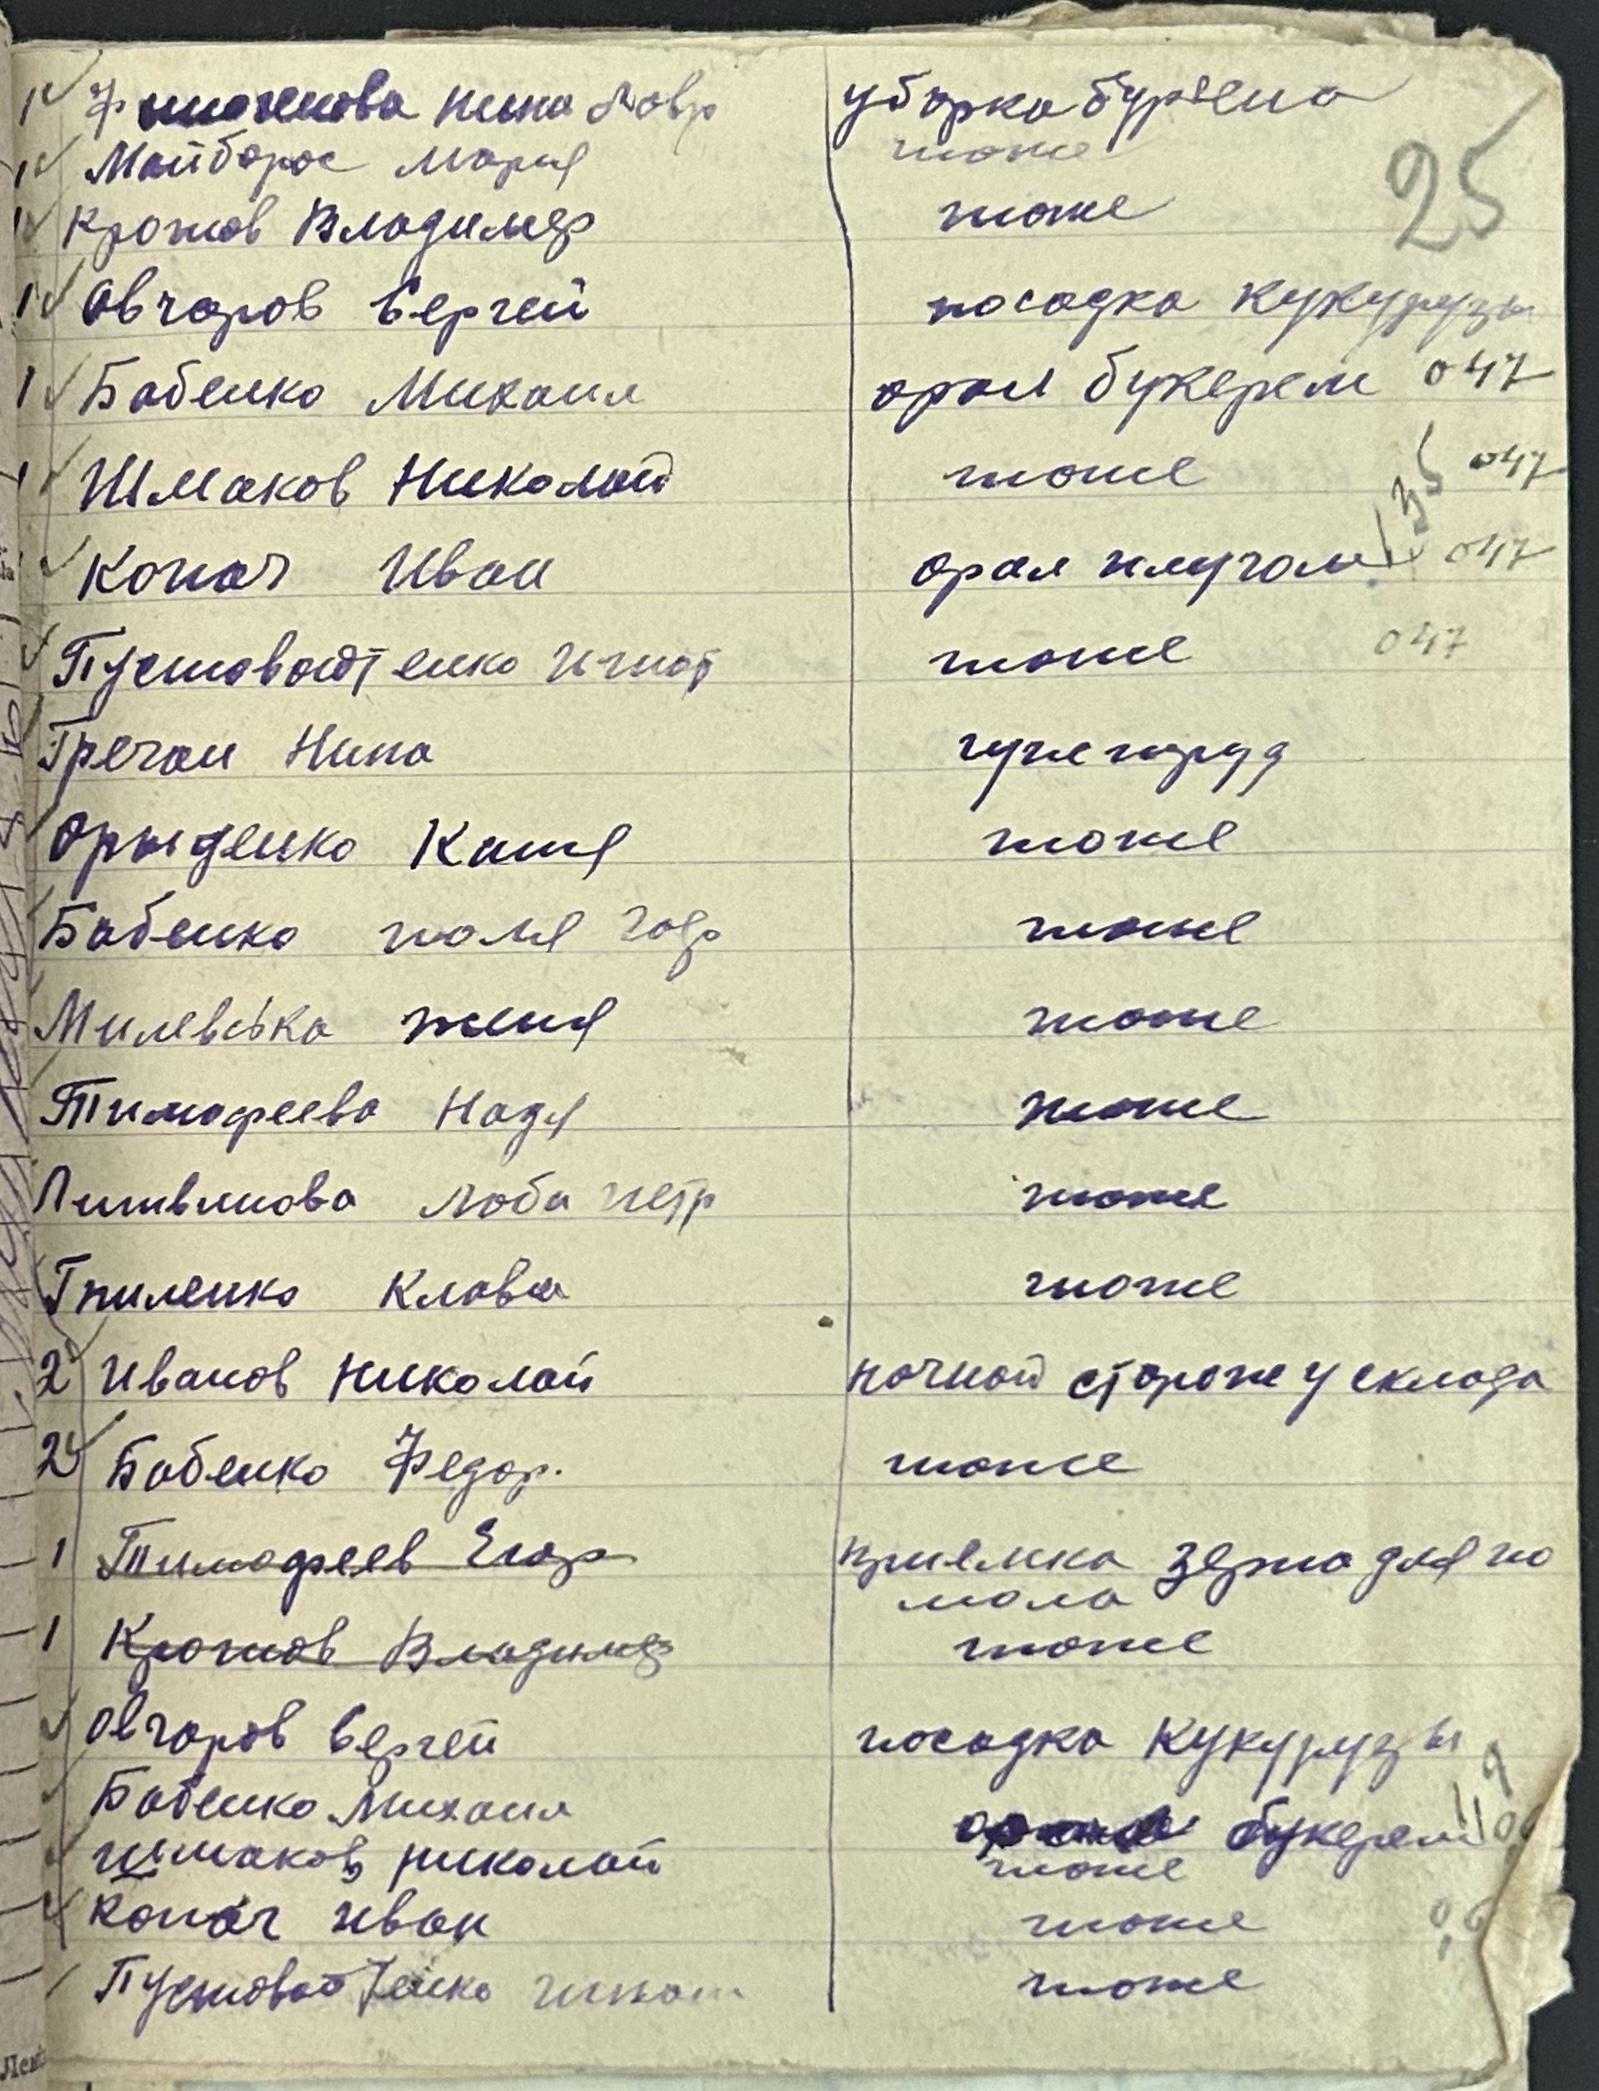 1 нина Лавр уборка бурьена
25
1 Майборос Мария тоже
1 Кротов Владимер тоже
1 Овчаров Сергей посадка кукурузы
1 Бабенко Михаил орал букерем 047
1 Шмаков Николай тоже 047
135
Копач Иван орал плугом 047
Пустовойтенко Игнат тоже 047
Гречан Нина
Орыденко Катя тоже
Бабенко поля тоже
Милевська женя тоже
Тимофеева Надя тоже
Литвинова Люба петр тоже
Гниленко Клава тоже
2 Иванов Николай ночной сторож у склада
2 Бабенко Федор. тоже
1 Тимофеев Егор приемка зерна для по
мола
1 Кротов Владимер тоже
Овчаров Сергей посадка кукурузы
Бабенко Михаил букерем
Шмаков николай тоже
Копач иван тоже
Пустовойтенко игнат тоже